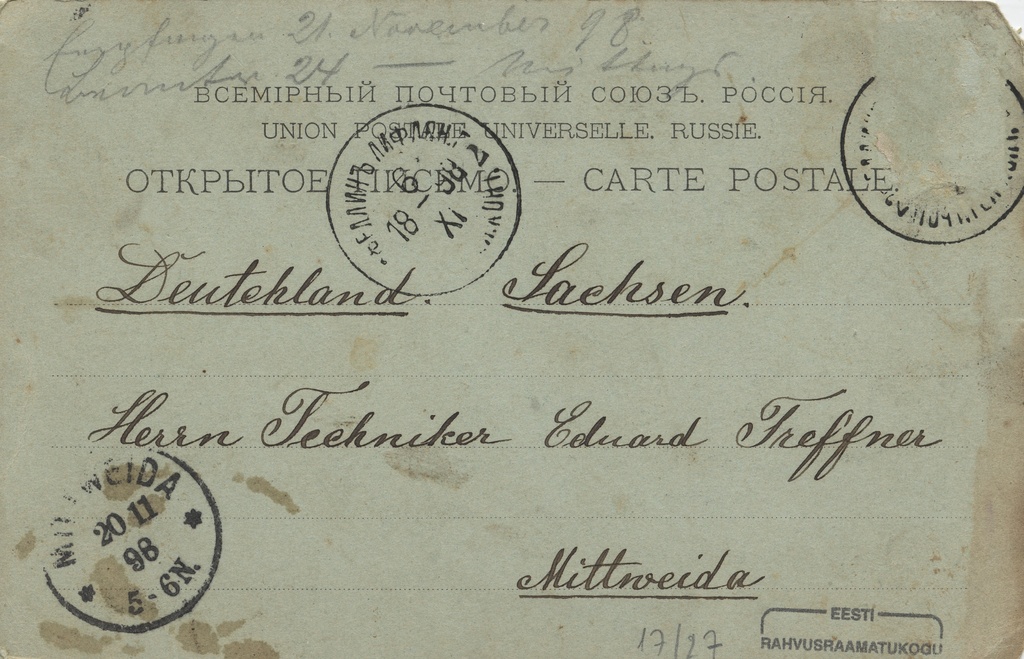 Empfingen 21. November 98.
24 — Mittags
ВСЕМІРНЫЙ ПОЧТОВЫЙ СОЮЗЪ. РОССІЯ.
UNION POSTALE UNIVERSELLE. RUSSIE.
ОТКРЫТОЕ ПИСЬМО. — CARTE POSTALE
ФЕЛЛИНЪ ЛИФЛЯН.
18 8 98
XI
Deutchland. Sachsen.
Herrn Techniker Eduard Treffner
MITTWEIDA
20 11
98
5-6N.
Mittweida
EESTI
RAHVUSRAAMATUKOGU
17/27